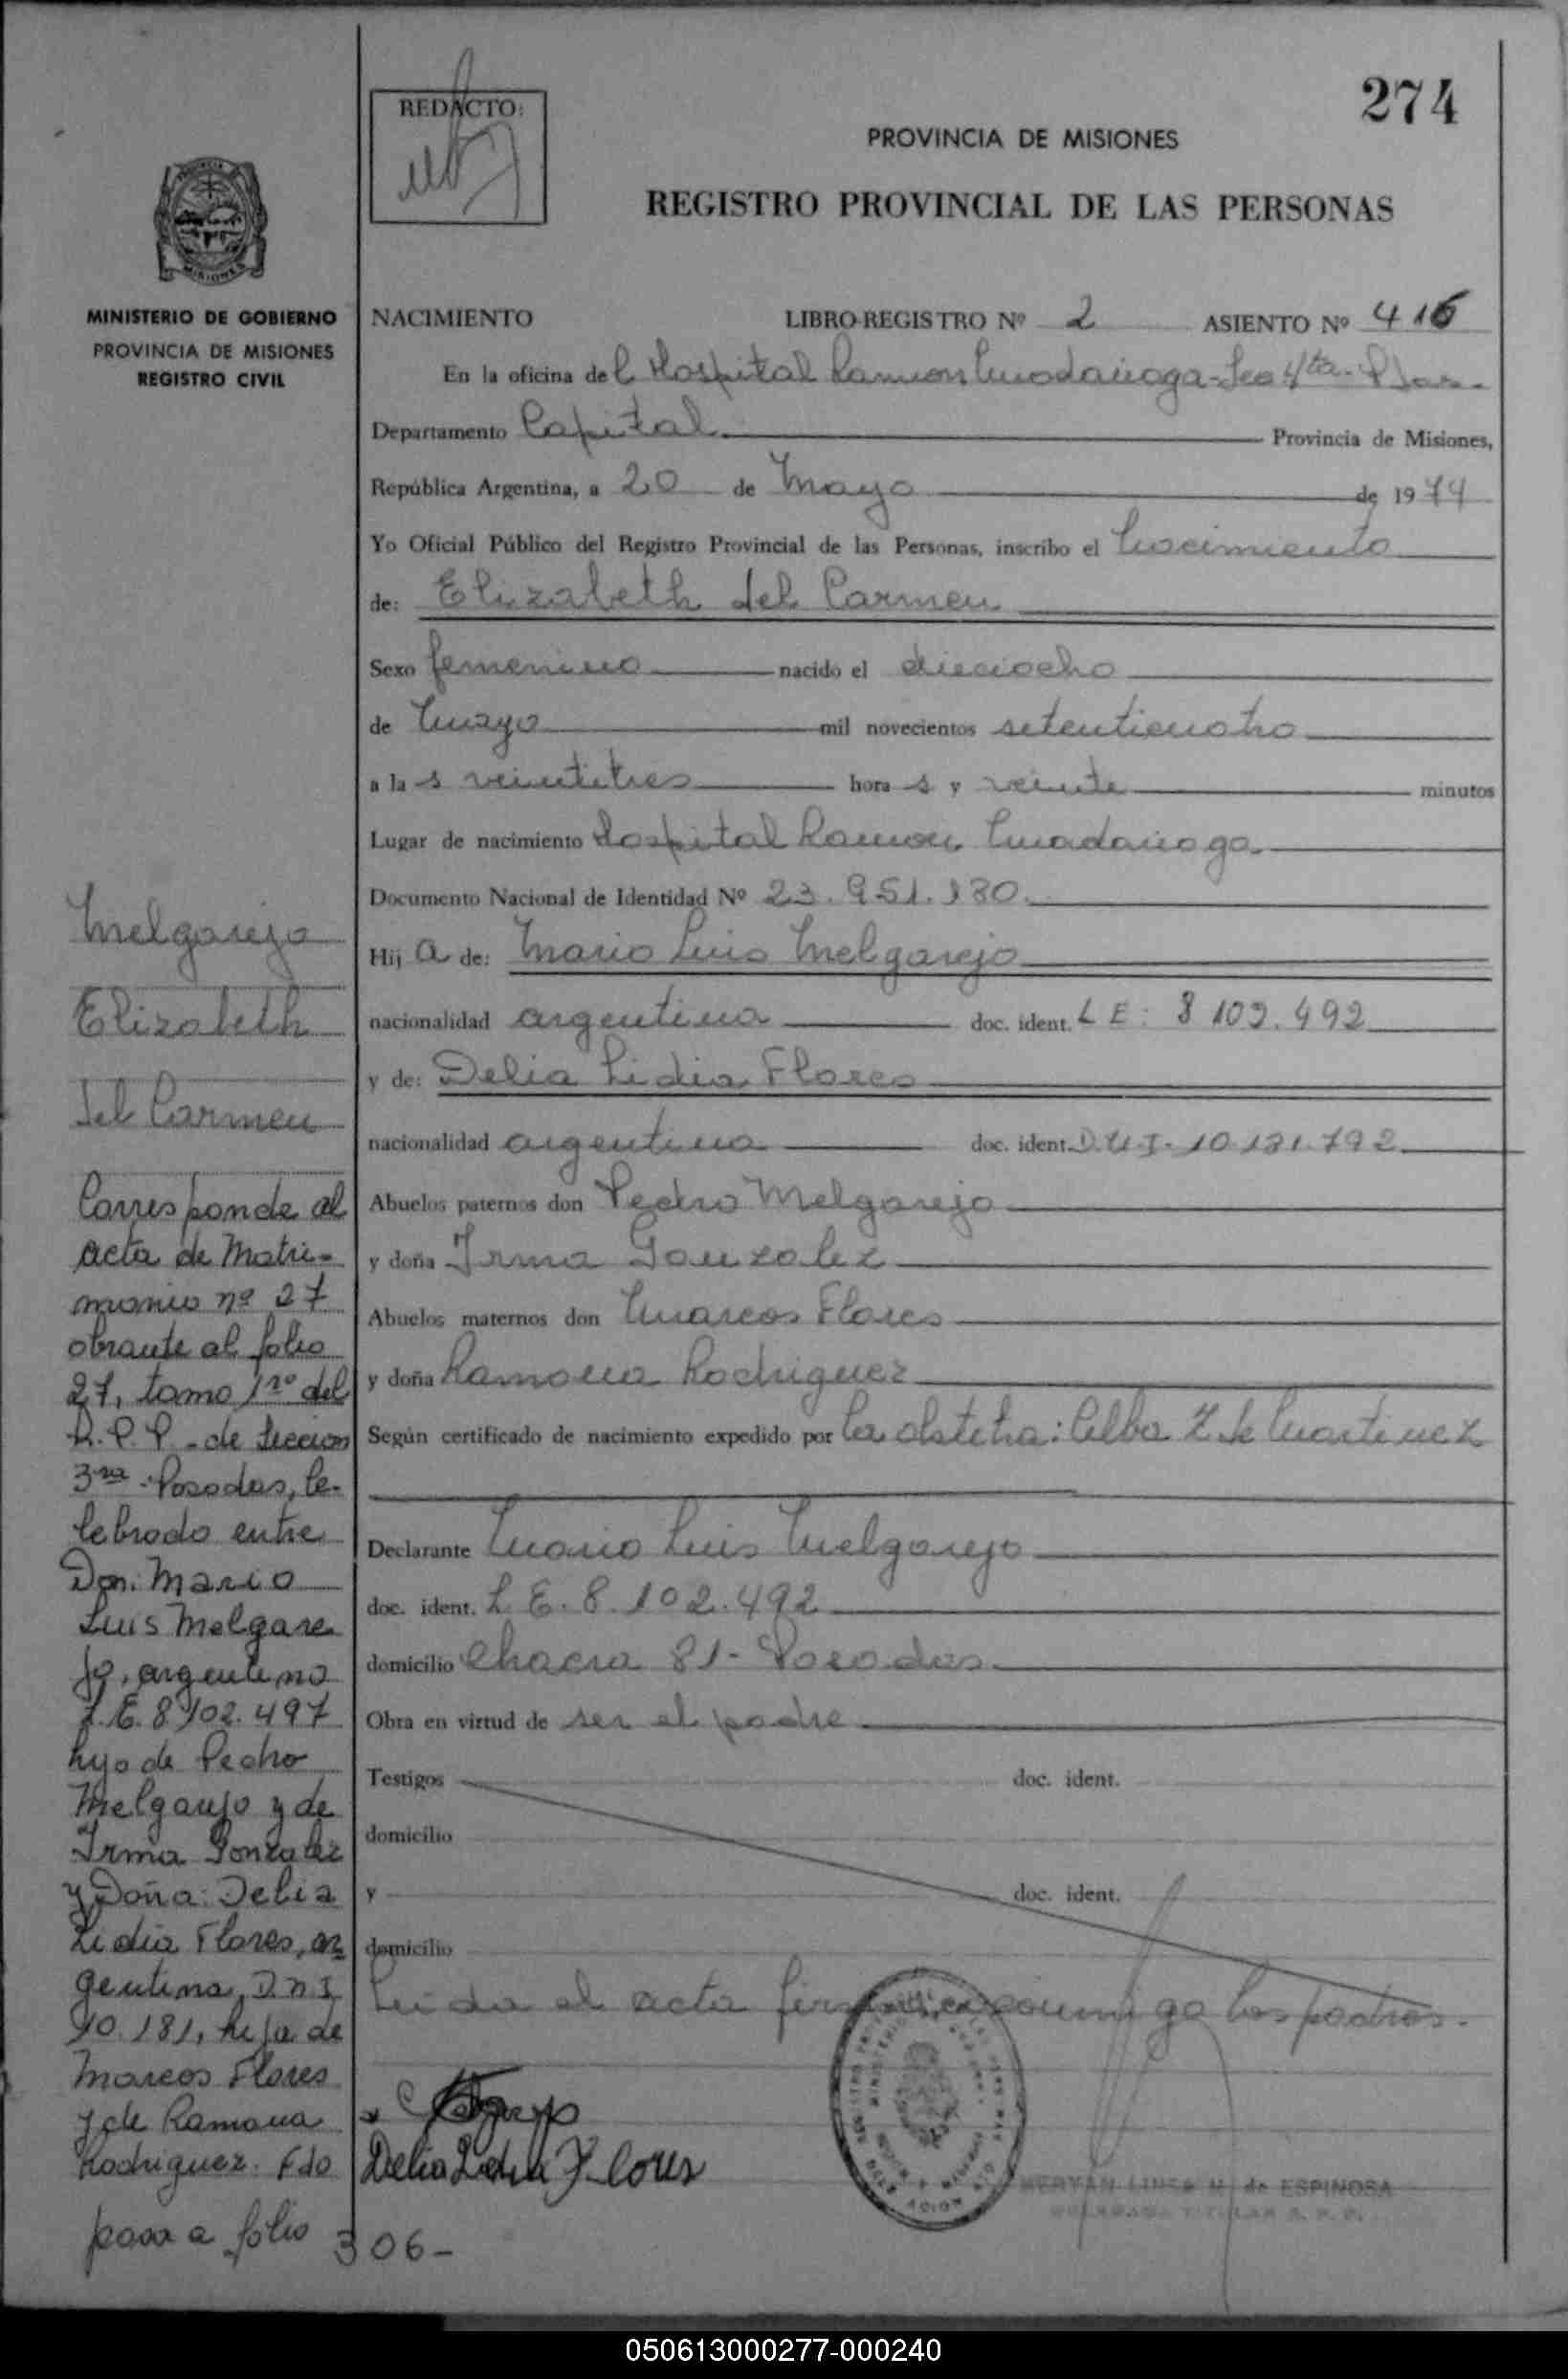 274
REDACTO:
PROVINCIA DE MISIONES
REGISTRO PROVINCIAL DE LAS PERSONAS
MINISTERIO DE GOBIERNO
PROVINCIA DE MISIONES
REGISTRO CIVIL
NACIMIENTO LIBRO-REGISTRO Nº 2 ASIENTO Nº 416
En la oficina del Hospital Ramon Madariaga - Sec 4ta - Pdas.
Departamento Capital Provincia de Misiones,
República Argentina, a 20 de Mayo de 1974
Yo Oficial Público del Registro Provincial de las Personas, inscribo el Nacimiento
de: Elizabeth del Carmen
Sexo femenino nacido el dieciocho
de Mayo mil novecientos setenticuatro
a las veintitres horas y veinte minutos
Lugar de nacimiento Hospital Ramon Madariaga
Documento Nacional de Identidad Nº 23.951.130.
Hija de: Mario Luis Melgarejo
nacionalidad argentina doc. ident. L E: 8 102.492
y de: Delia Lidia Flores
nacionalidad argentina doc. ident. D.N.I. 10.181.792
Abuelos paternos don Pedro Melgarejo
y doña Irma Gonzalez
Abuelos maternos don Marcos Flores
y doña Ramona Rodriguez
Según certificado de nacimiento expedido por la obstetra: Alba Z de Martinez
Declarante Mario Luis Melgarejo
doc. ident. L.E. 8.102.492
domicilio Chacra 81 - Posadas
Obra en virtud de ser el padre
Testigos doc. ident.
domicilio
y doc. ident.
domicilio
Leida el acta firman conmigo los padres.
Delia Lidia Flores
de ESPINOSA
Melgarejo
Elizabeth
del Carmen
Corresponde al
acta de Matri-
monio nº 27
obrante al folio
27, tomo 1ro del
R.P.P. - de Seccion
3ra - Posadas, Ce-
lebrado entre
Don: Mario
Luis Melgare
jo, argentino
L.E. 8.102.497
hijo de Pedro
Melgarejo y de
Irma Gonzalez
y Doña: Delia
Lidia Flores, ar
gentina, D.N.I
10.181, hija de
Marcos Flores
y de Ramona
Rodriguez. Fdo
pasa a folio 306-
050613000277-000240